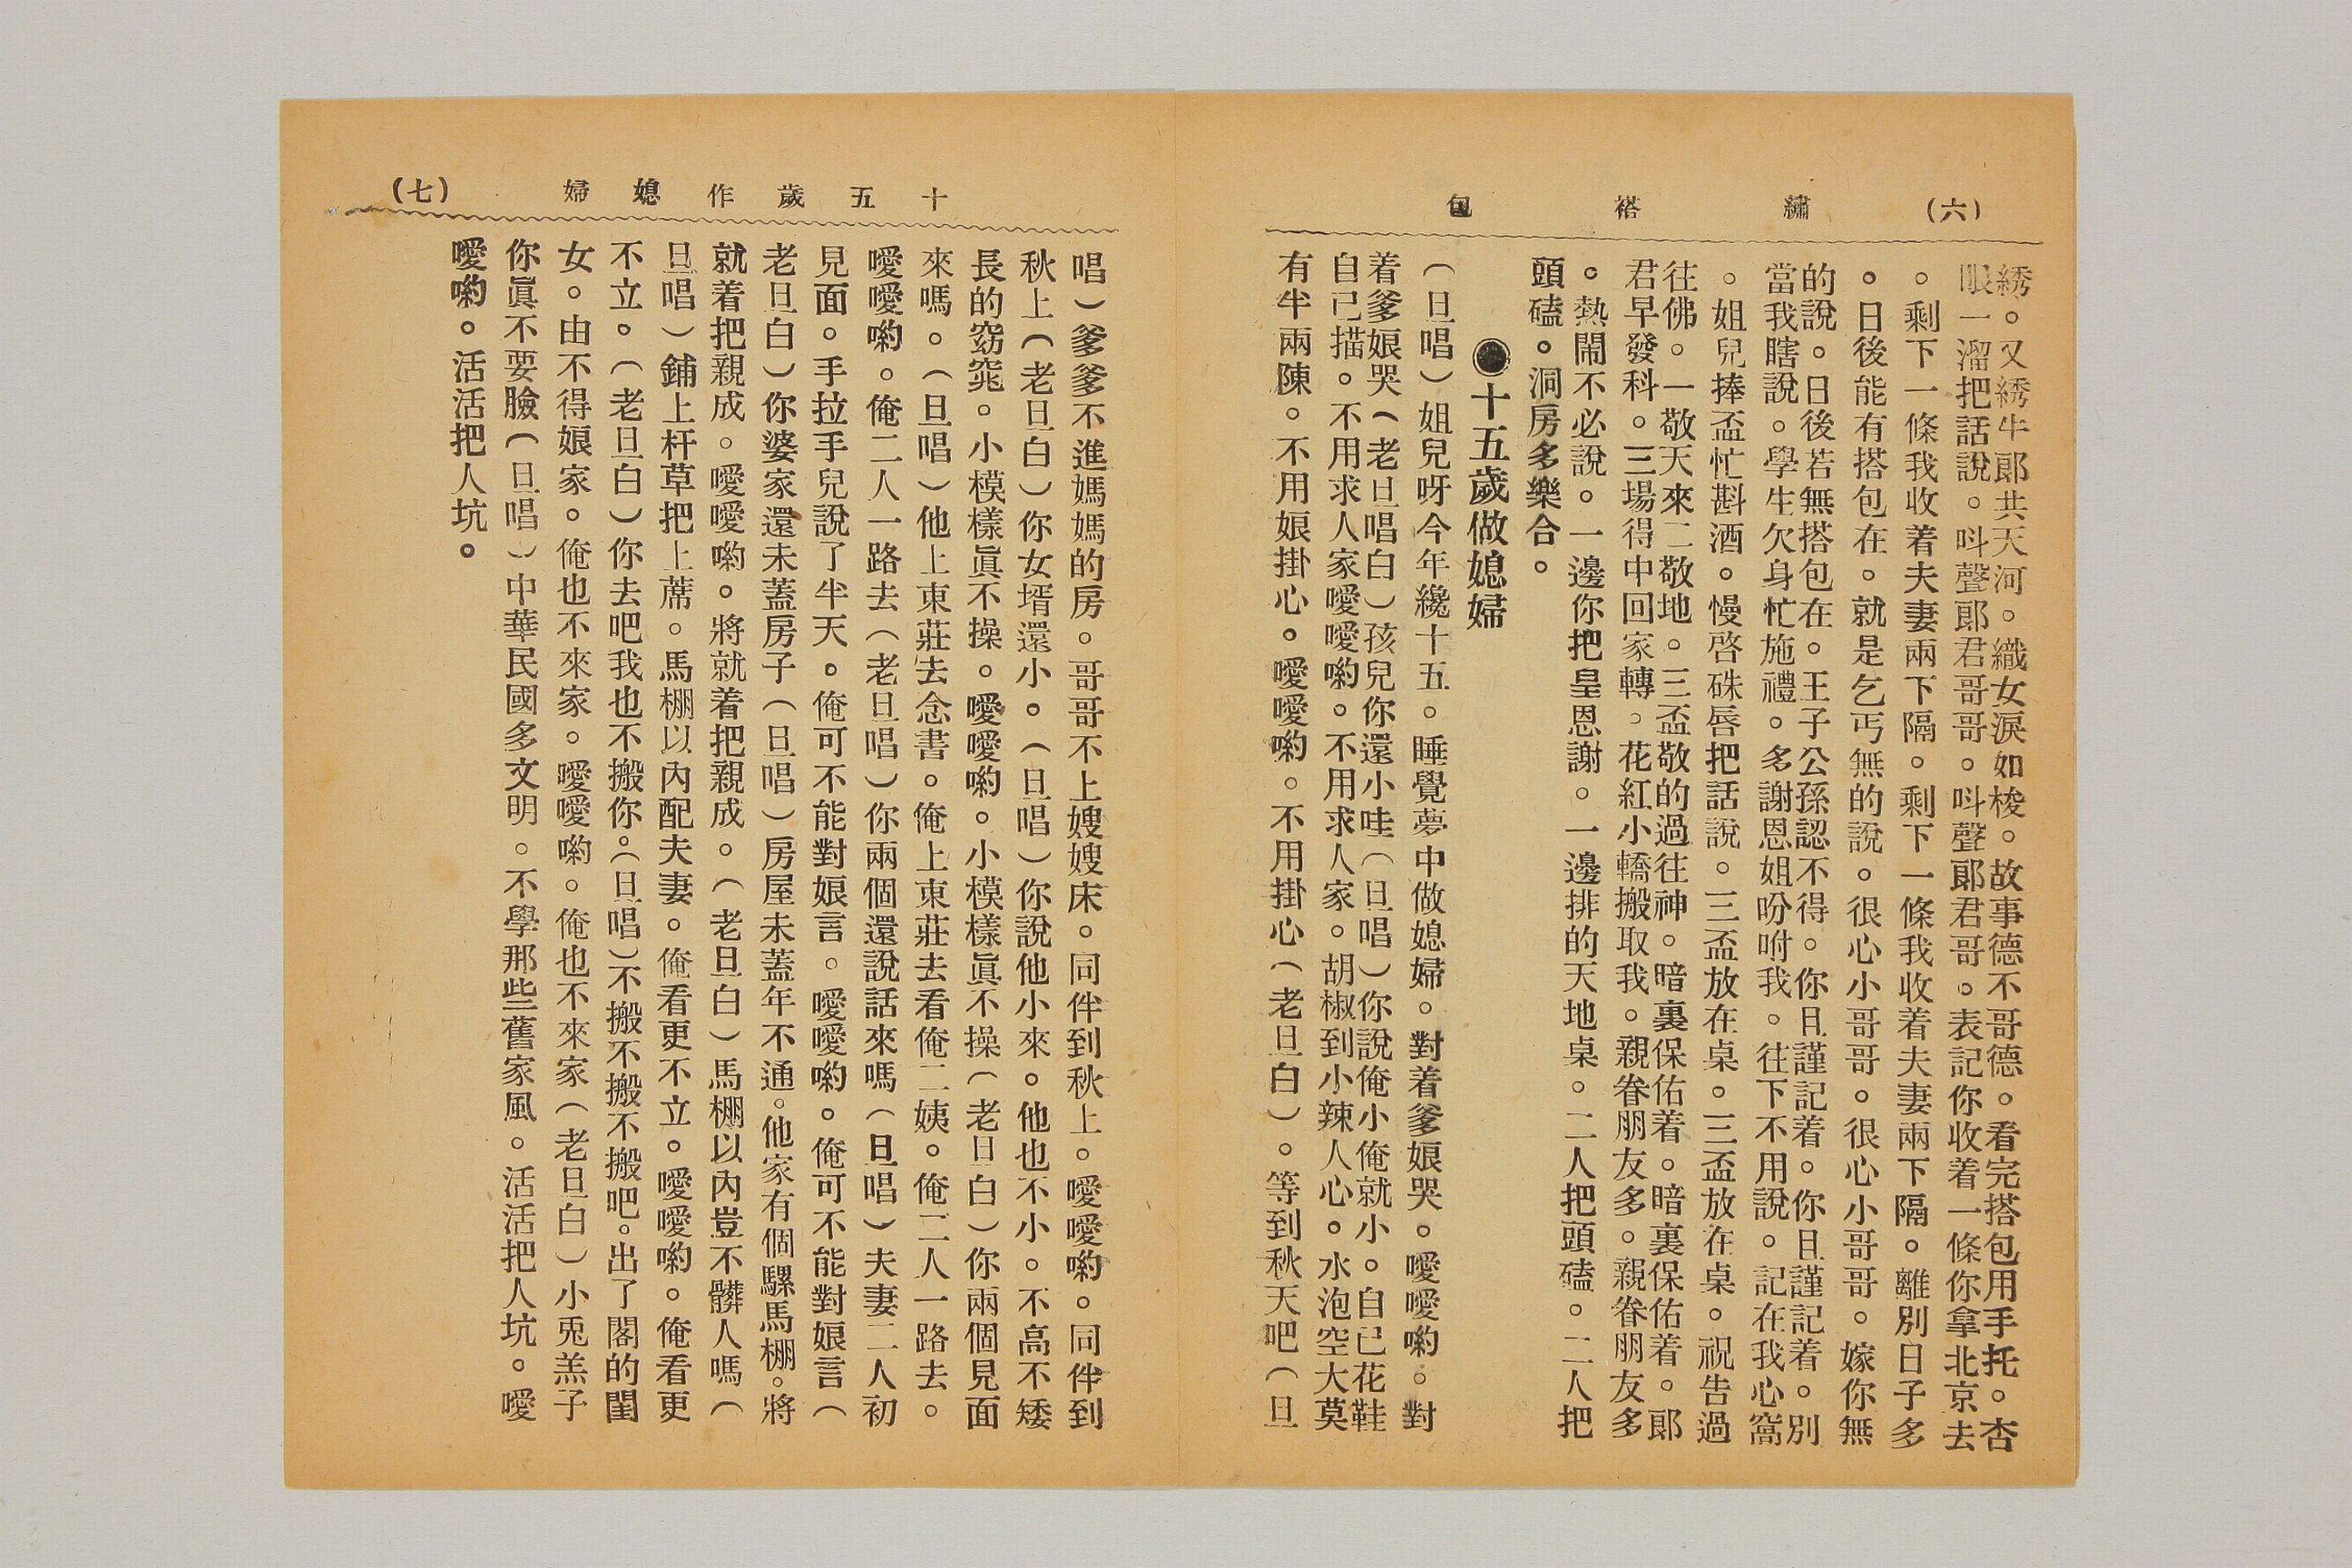 (六)　繡　褡　包
綉。又綉牛郞共天河。織女淚如梭。故事德不哥德。看完搭包用手托。杏
眼一溜把話說。呌聲郞君哥哥。呌聲郞君哥。表記你收着一條你拿北京去
。剩下一條我收着夫妻兩下隔。剩下一條我收着夫妻兩下隔。離別日子多
。日後能有搭包在。就是乞丐無的說。很心小哥哥。很心小哥哥。嫁你無
的說。日後若無搭包在。王子公孫認不得。你且謹記着。你且謹記着。別
當我瞎說。學生欠身忙施禮。多謝恩姐吩咐我。往下不用說。記在我心窩
。姐兒捧盃忙斟酒。慢啓硃唇把話說。三盃放在桌。三盃放在桌。祝告過
往佛。一敬天來二敬地。三盃敬的過往神。暗裏保佑着。暗裏保佑着。郞
君早發科。三場得中回家轉。花紅小轎搬取我。親眷朋友多。親眷朋友多
。熱鬧不必說。一邊你把皇恩謝。一邊排的天地桌。二人把頭磕。二人把
頭磕。洞房多樂合。
●十五歲做媳婦
（旦唱）姐兒呀今年纔十五。睡覺夢中做媳婦。對着爹娘哭。噯噯喲。對
着爹娘哭（老旦唱白）孩兒你還小哇（旦唱）你說俺小俺就小。自已花鞋
自已描。不用求人家噯噯喲。不用求人家。胡椒到小辣人心。水泡空大莫
有半兩陳。不用娘掛心。噯噯喲。不用掛心（老旦白）。等到秋天吧（旦
十五歲作媳婦　(七)
唱）爹爹不進媽媽的房。哥哥不上嫂嫂床。同伴到秋上。噯噯喲。同伴到
秋上（老旦白）你女壻還小。（旦唱）你說他小來。他也不小。不高不矮
長的窈窕。小模樣眞不操。噯噯喲。小模樣眞不操（老旦白）你兩個見面
來嗎。（旦唱）他上東莊去念書。俺上東莊去看俺二姨。俺二人一路去。
噯噯喲。俺二人一路去（老旦唱）你兩個還說話來嗎（旦唱）夫妻二人初
見面。手拉手兒說了半天。俺可不能對娘言。噯噯喲。俺可不能對娘言（
老旦白）你婆家還未蓋房子（旦唱）房屋未蓋年不通。他家有個騾馬棚。將
就着把親成。噯噯喲。將就着把親成。（老旦白）馬棚以內豈不髒人嗎（
旦唱）鋪上杆草把上蓆。馬棚以內配夫妻。俺看更不立。噯噯喲。俺看更
不立。（老旦白）你去吧我也不搬你。（旦唱）不搬不搬不搬吧。出了閣的閨
女。由不得娘家。俺也不來家。噯噯喲。俺也不來家（老旦白）小兎羔子
你眞不要臉（旦唱）中華民國多文明。不學那些舊家風。活活把人坑。噯
噯喲。活活把人坑。